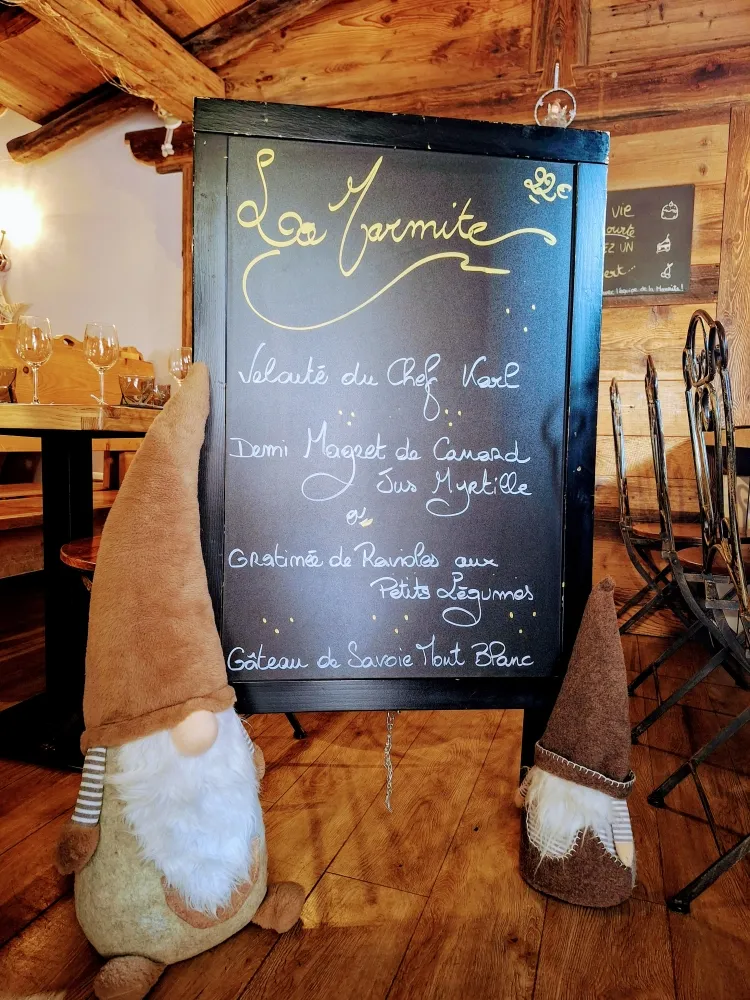 La Marmite
22€
Velouté du Chef Karl
Demi Magret de Canard
Jus Myrtille
ou
Gratinée de Ravioles aux
Petits Légumes
Gâteau de Savoie Mont Blanc
vie
courte
EZ UN
ert
l'équipe de la Marmite!